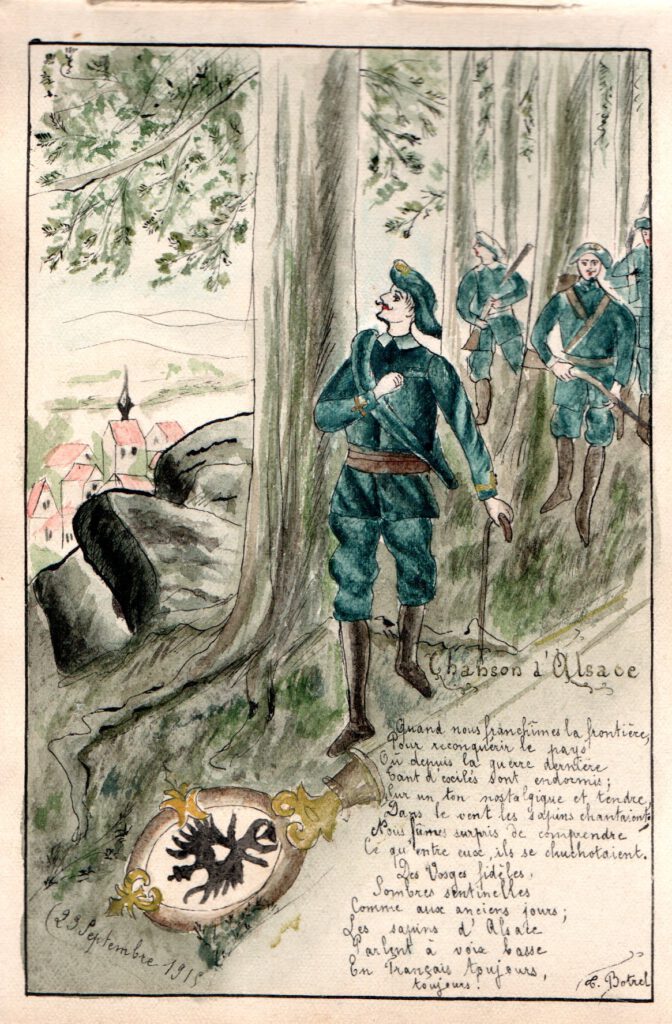 Chanson d'Alsace
Quand nous franchîmes la frontière,
Pour reconquérir le pays
Où depuis la guerre dernière
Tant d'exilés sont endormis;
Sur un ton nostalgique et tendre,
Dans le vent les sapins chantaient
Nous fûmes surpris de comprendre
Ce qu'entre eux, ils se chuchotaient.
Des Vosges fidèles,
Sombres sentinelles
Comme aux anciens jours;
Les sapins d'Alsace
Parlent à voix basse
En Français toujours,
toujours!
T. Botrel
(29 Septembre 1915